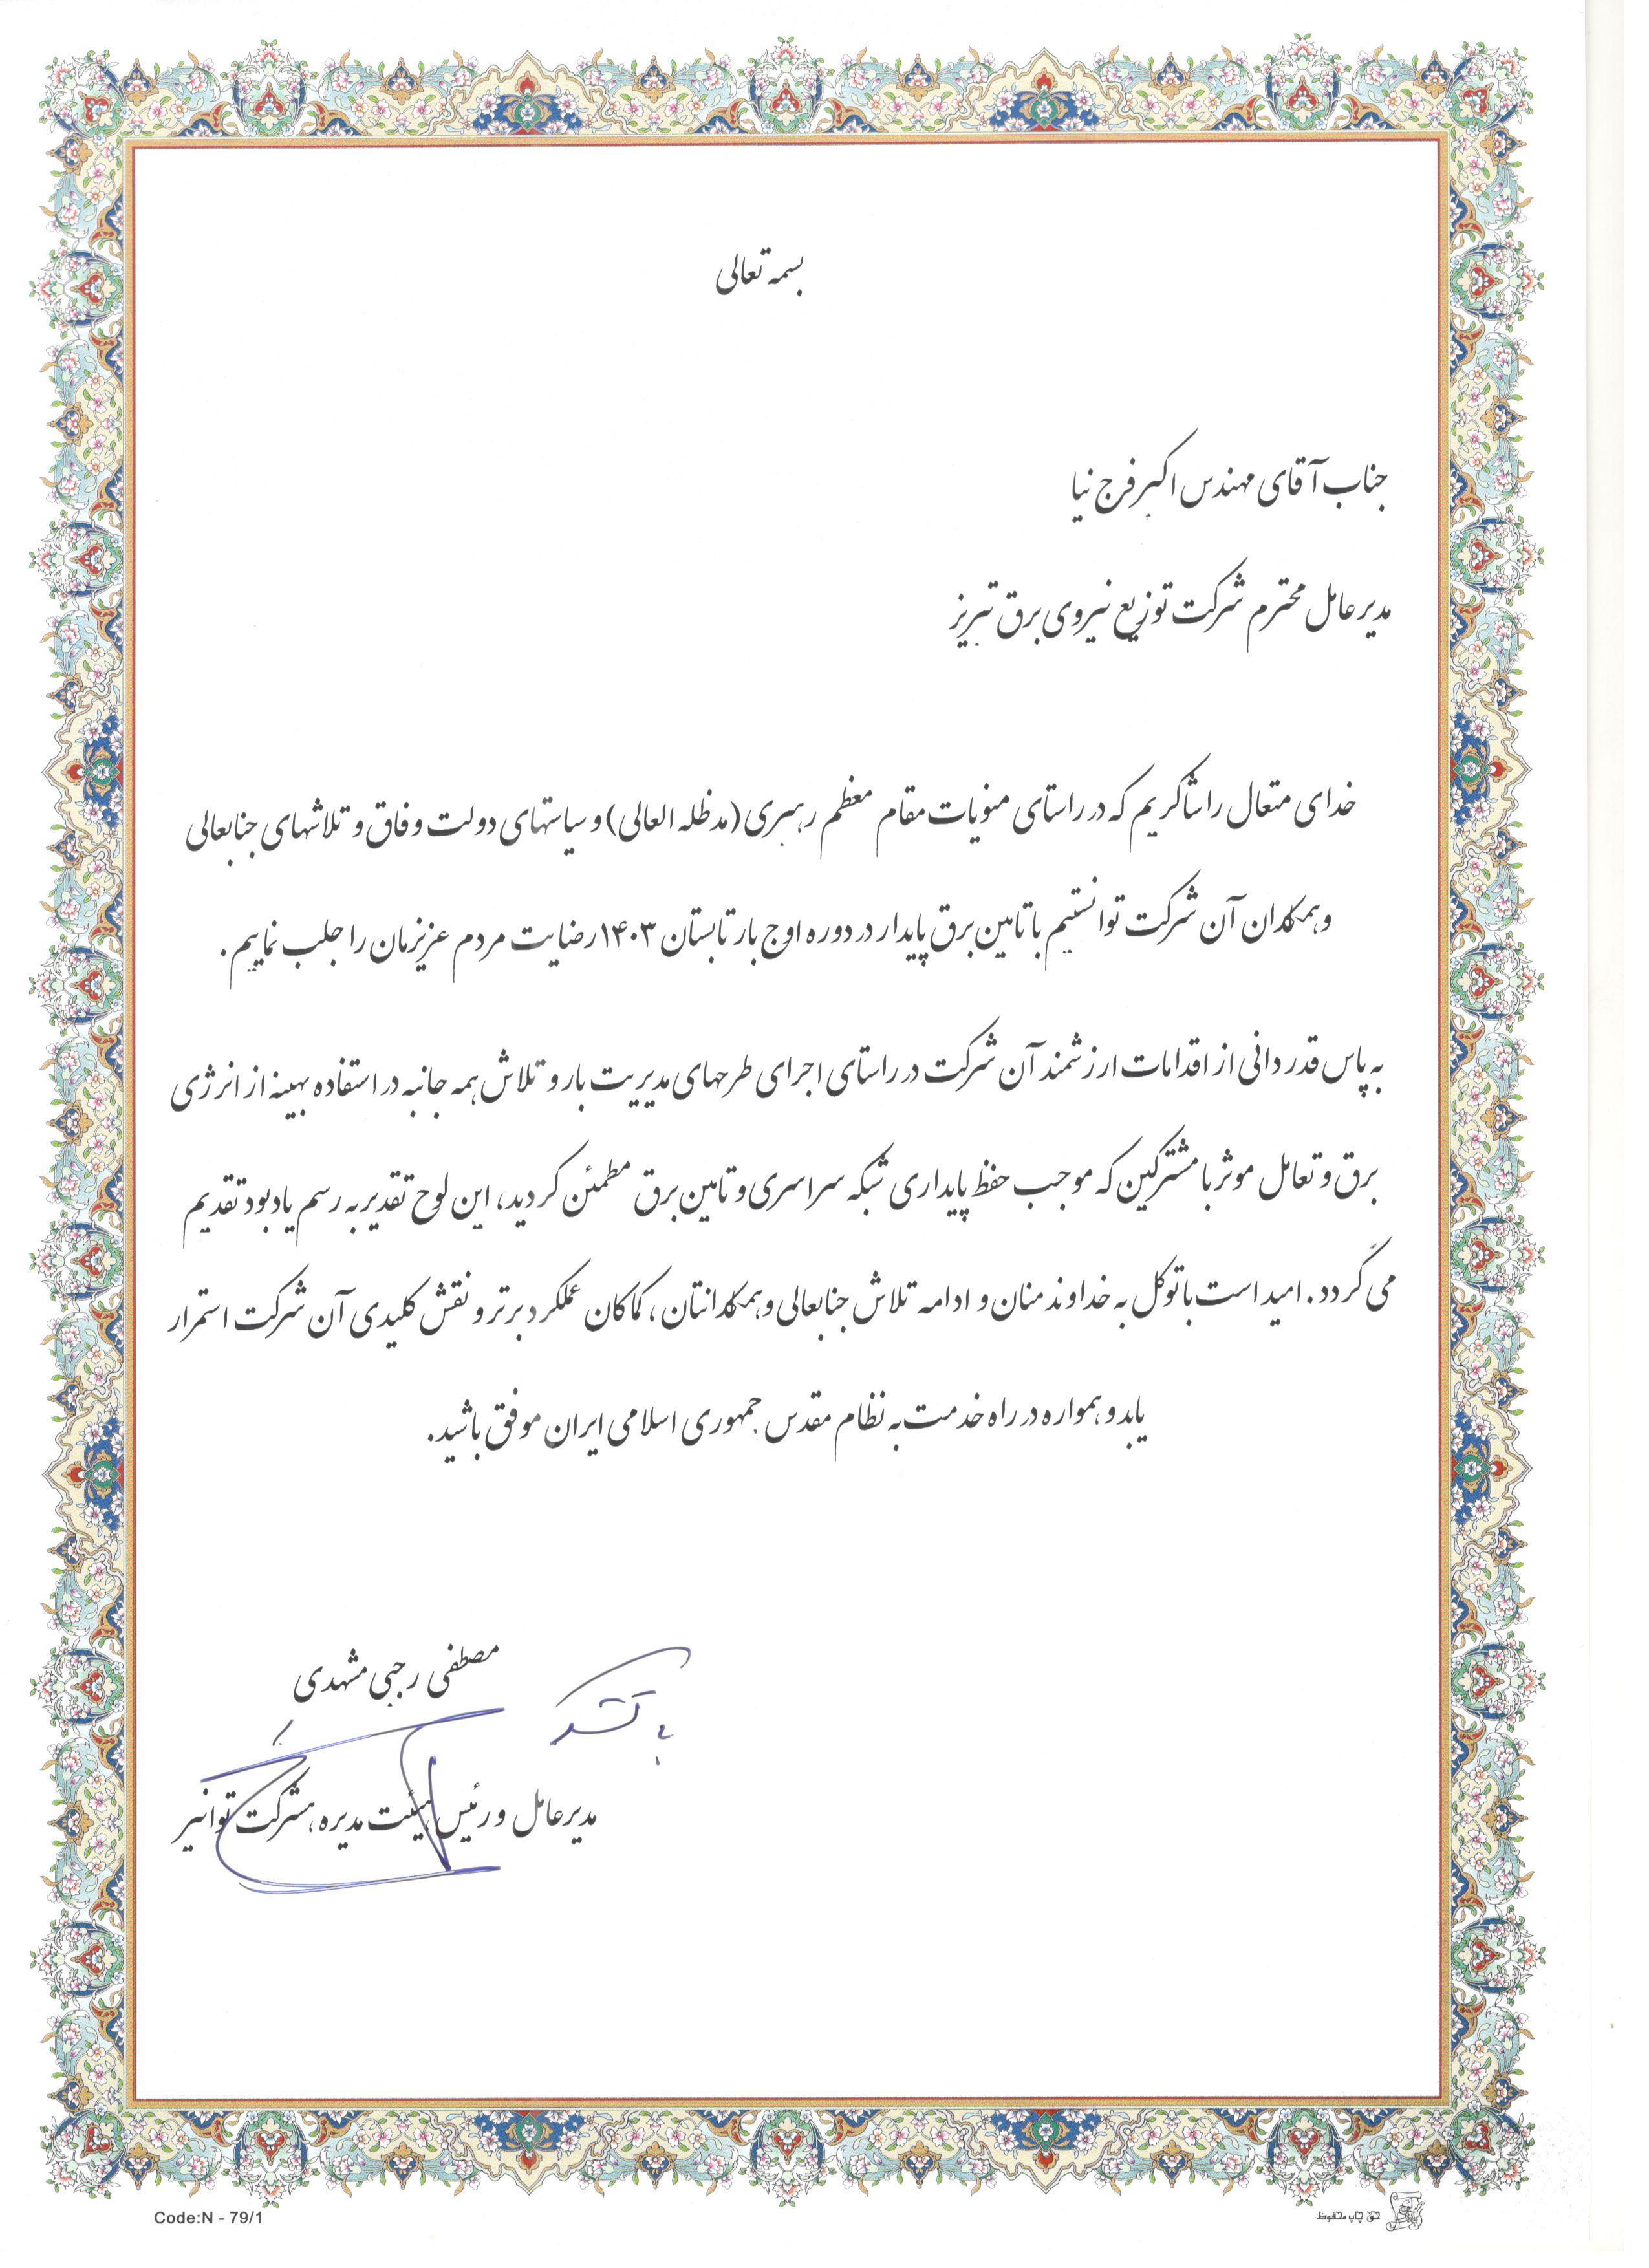 بسمه تعالی
جناب آقای مهندس اکبر فرج نیا
مدیرعامل محترم شرکت توزیع نیروی برق تبریز
خدای متعال را شاکریم که در راستای منویات مقام معظم رهبری (مدظله العالی) و سیاستهای دولت وفاق و تلاشهای جنابعالی
و همکاران آن شرکت توانستیم با تامین برق پایدار در دوره اوج بار تابستان ۱۴۰۳ رضایت مردم عزیزمان را جلب نماییم.
به پاس قدردانی از اقدامات ارزشمند آن شرکت در راستای اجرای طرحهای مدیریت بار و تلاش همه جانبه در استفاده بهینه از انرژی
برق و تعامل موثر با مشترکین که موجب حفظ پایداری شبکه سراسری و تامین برق مطمئن گردید، این لوح تقدیر به رسم یادبود تقدیم
می گردد. امید است با توکل به خداوند منان و ادامه تلاش جنابعالی و همکارانتان، کماکان عملکرد برتر و نقش کلیدی آن شرکت استمرار
یابد و همواره در راه خدمت به نظام مقدس جمهوری اسلامی ایران موفق باشید.
مصطفی رجبی مشهدی
با تشکر
مدیرعامل و رئیس هیئت مدیره شرکت توانیر
Code:N - 79/1
حق چاپ محفوظ